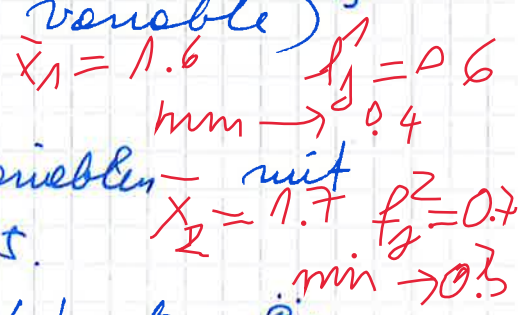 variable)
x̄₁ = 1.6 f¹y = 0.6
→ 0.4
variablen mit
x̄₂ = 1.7 f²y = 0.7
5.
min → 0.3